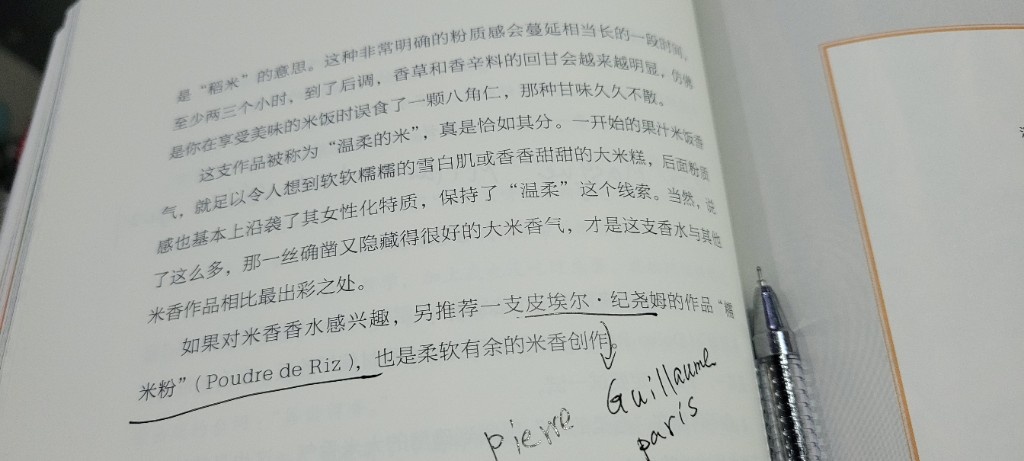 是“稻米”的意思。这种非常明确的粉质感会蔓延相当长的一段时间，
至少两三个小时，到了后调，香草和香辛料的回甘会越来越明显，仿佛
是你在享受美味的米饭时误食了一颗八角仁，那种甘味久久不散。
这支作品被称为“温柔的米”，真是恰如其分。一开始的果汁米饭香
气，就足以令人想到软软糯糯的雪白肌或香香甜甜的大米糕，后面粉质
感也基本上沿袭了其女性化特质，保持了“温柔”这个线索。当然，说
了这么多，那一丝确凿又隐藏得很好的大米香气，才是这支香水与其他
米香作品相比最出彩之处。
如果对米香香水感兴趣，另推荐一支皮埃尔·纪尧姆的作品“
米粉”（Poudre de Riz），也是柔软有余的米香创作。
pierre Guillaume
paris